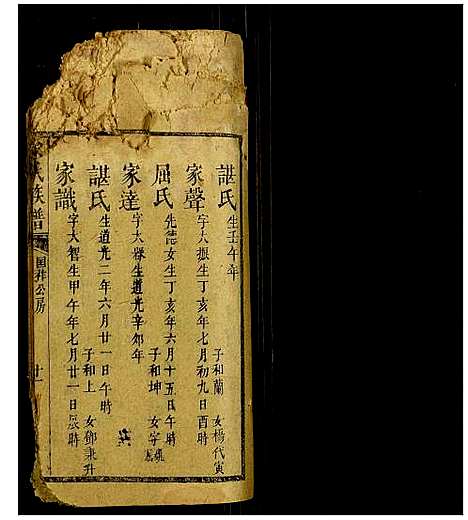 諶氏 生壬午年 子和蘭 女楊代寅
家聲 字大振生丁亥年七月初九日酉時
屈氏 先德女生丁亥年六月十五日午時 子和坤 女字
家達 字大祿生道光辛卯年
諶氏 生道光二年六月廿一日午時 子和上 女鄧秉升
家識 字大智生甲午年七月廿一日辰時
氏族譜 公房 十一